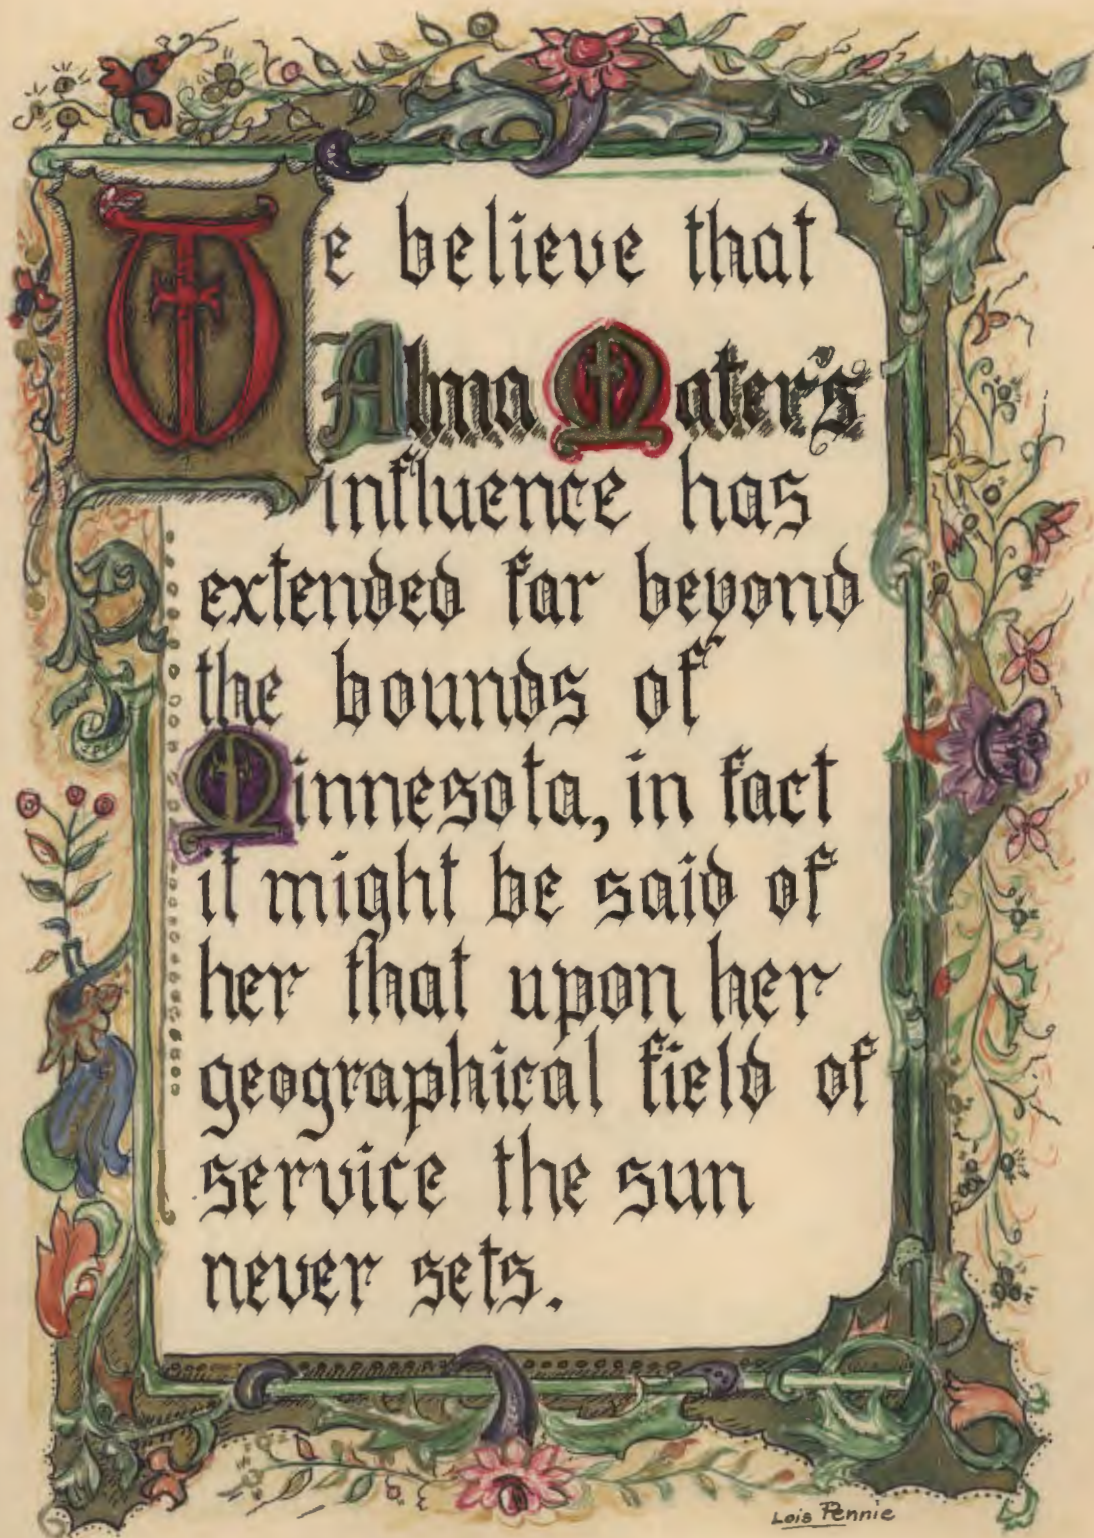 We believe that
Alma Mater's
influence has
extended far beyond
the bounds of
Minnesota, in fact
it might be said of
her that upon her
geographical field of
service the sun
never sets.
Lois Pennie